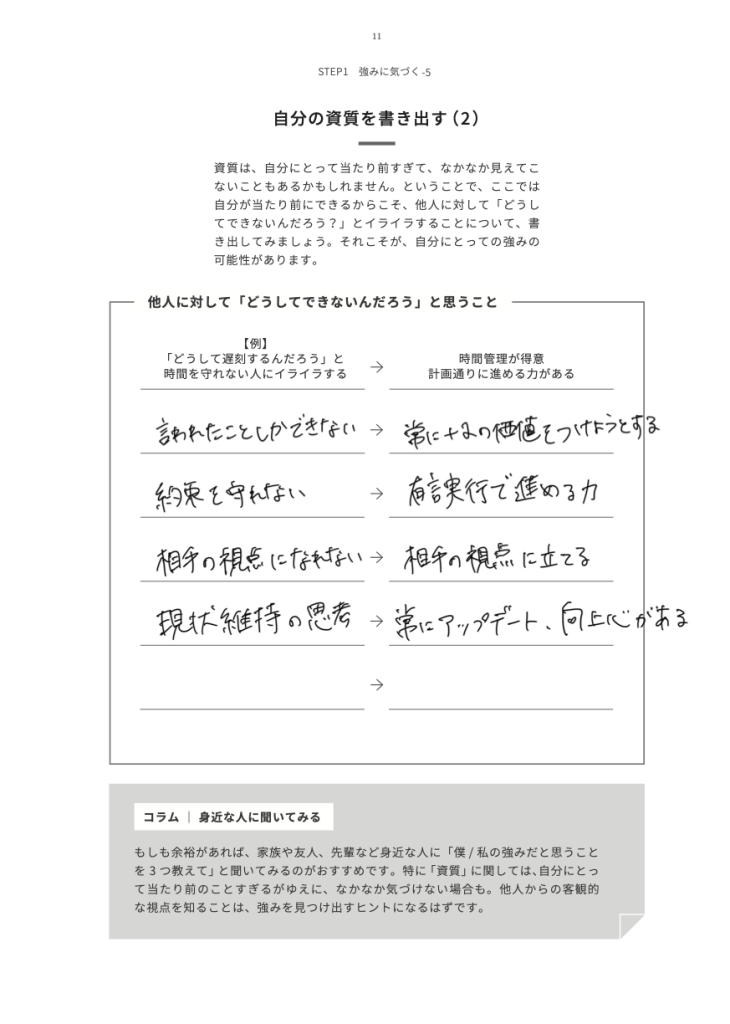 11
STEP1 強みに気づく-5
自分の資質を書き出す（2）
資質は、自分にとって当たり前すぎて、なかなか見えてこ
ないこともあるかもしれません。ということで、ここでは
自分が当たり前にできるからこそ、他人に対して「どうし
てできないんだろう？」とイライラすることについて、書
き出してみましょう。それこそが、自分にとっての強みの
可能性があります。
他人に対して「どうしてできないんだろう」と思うこと
【例】
「どうして遅刻するんだろう」と
時間を守れない人にイライラする
→
時間管理が得意
計画通りに進める力がある
言われたことしかできない → 常に+αの価値をつけようとする
約束を守れない → 有言実行で進める力
相手の視点になれない → 相手の視点に立てる
現状維持の思考 → 常にアップデート、向上心がある
→
コラム｜身近な人に聞いてみる
もしも余裕があれば、家族や友人、先輩など身近な人に「僕 / 私の強みだと思うこと
を 3 つ教えて」と聞いてみるのがおすすめです。特に「資質」に関しては、自分にとっ
て当たり前のことすぎるがゆえに、なかなか気づけない場合も。他人からの客観的
な視点を知ることは、強みを見つけ出すヒントになるはずです。